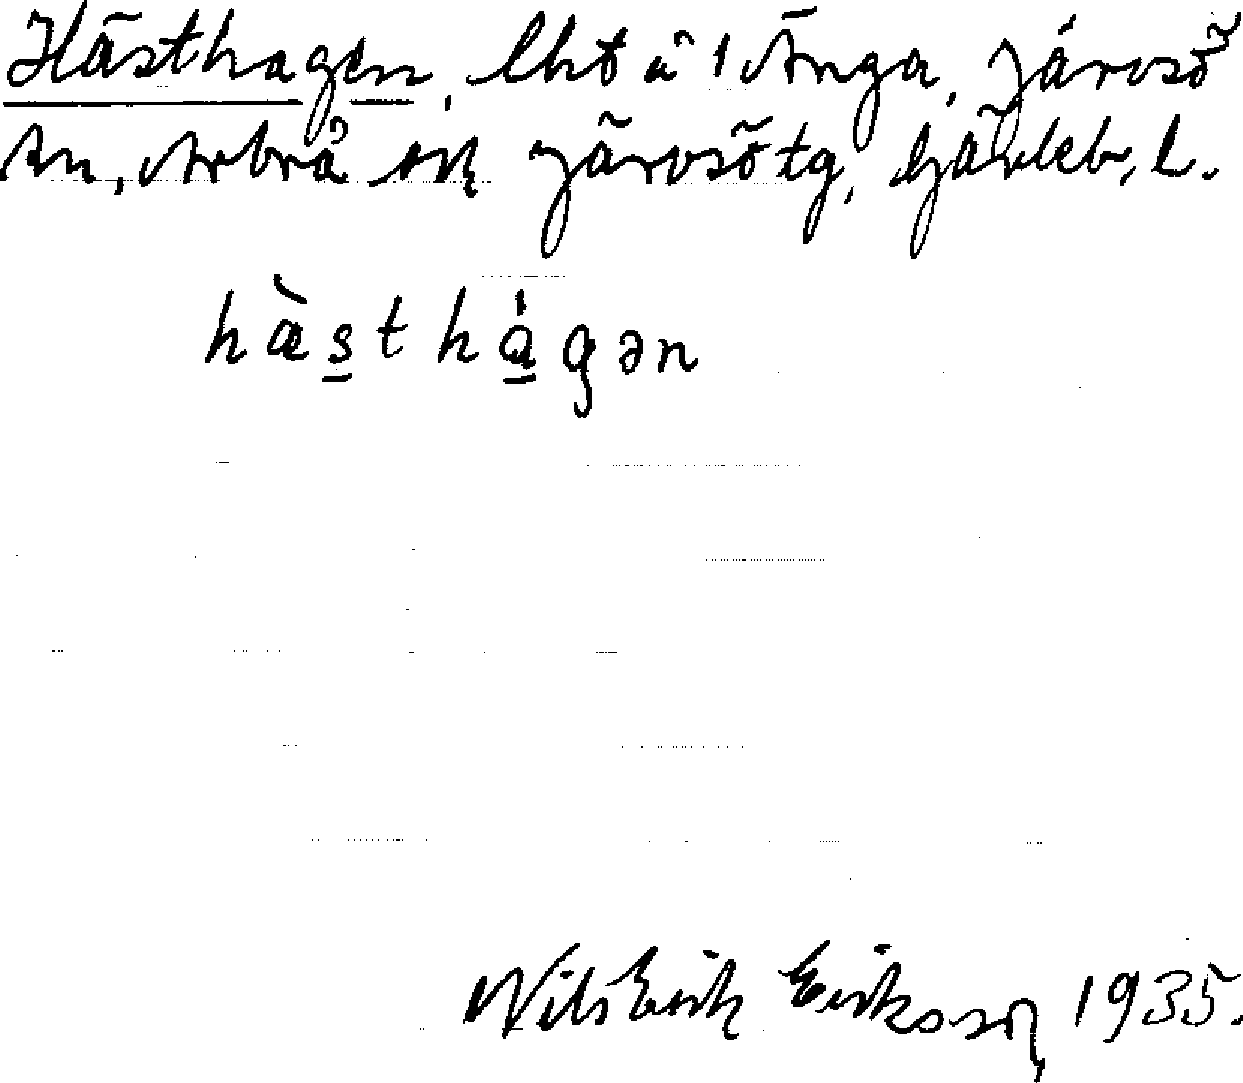 Hästhagen, lht å 1 Änga, Järvsö
sn, Arbrå och Järvsö tg, Gävleb. l.
hæ̀sthágən
Nils Erik Eriksson 1935.